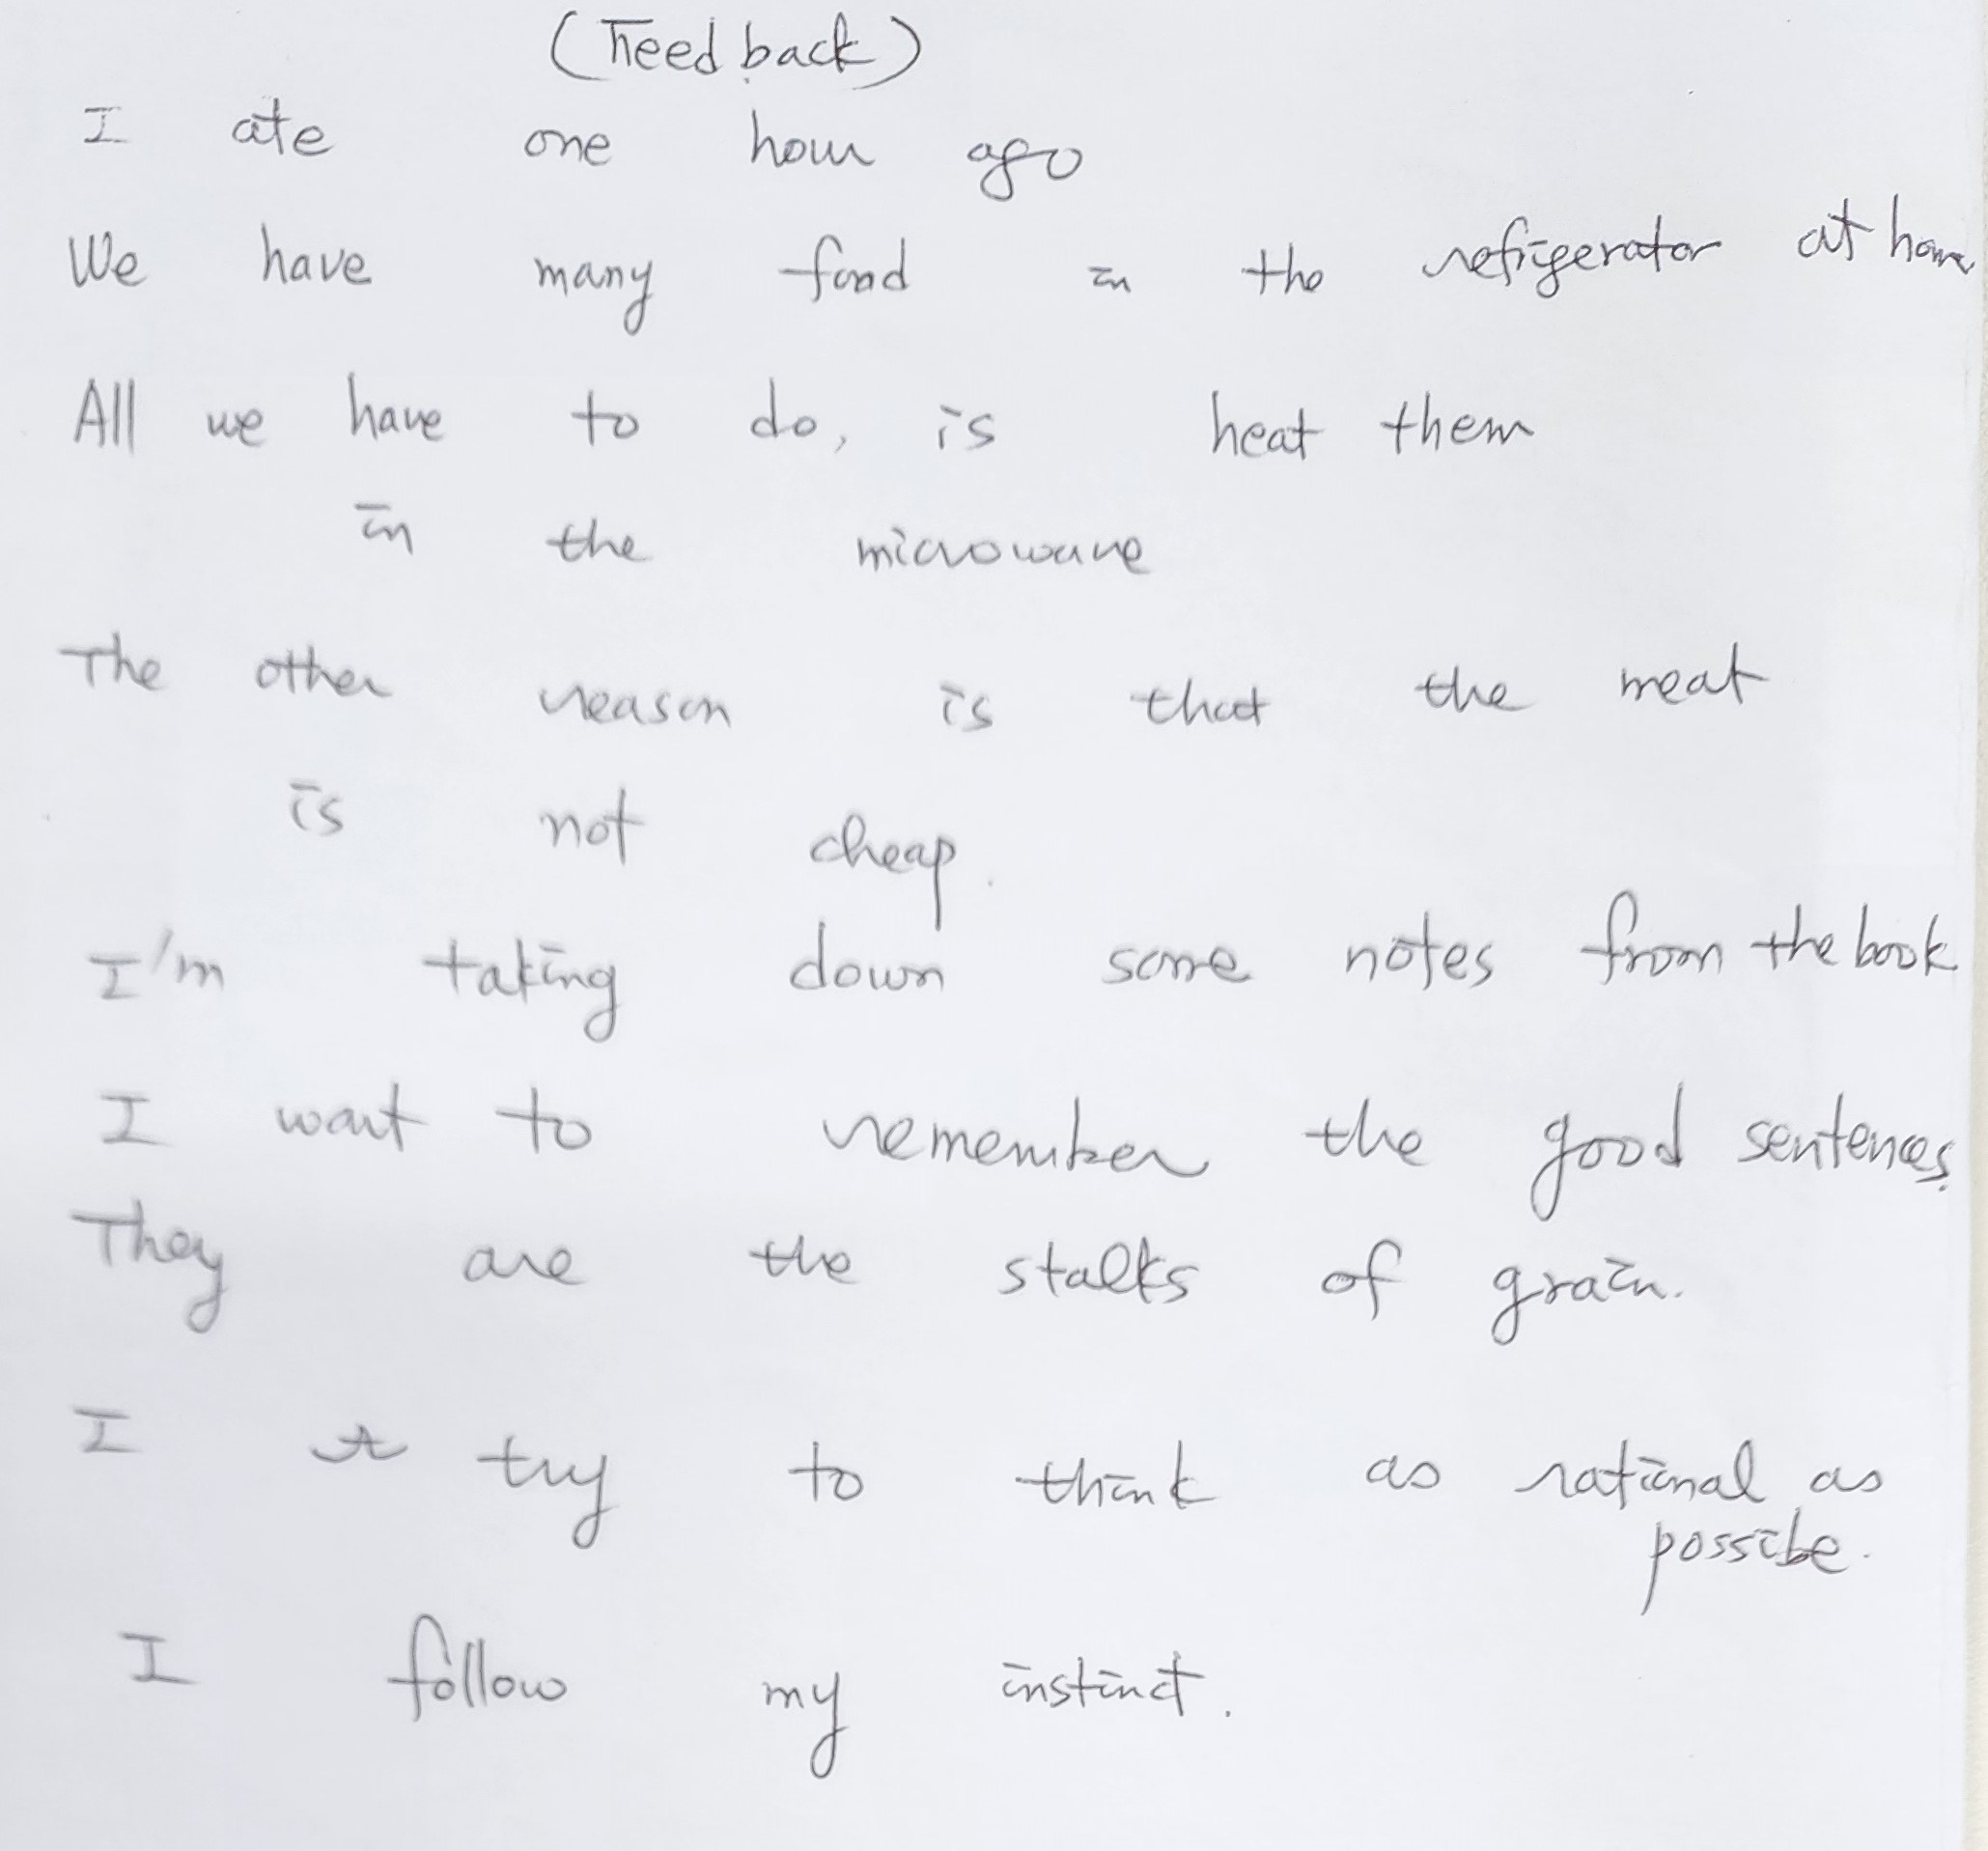 (Feedback)
I ate one hour ago
We have many food in the refrigerator at home
All we have to do, is heat them
in the microwave
The other reason is that the meat
is not cheap.
I'm taking down some notes from the book
I want to remember the good sentences.
They are the stalks of grain.
I try to think as rational as
possibe.
I follow my instinct.